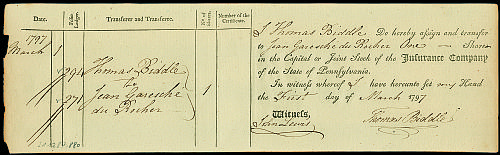 Date.
Folio Ledger.
Transferer and Transferree.
No. of Shares.
Number of the Certificate.
1797
March 1
Thomas Biddle
to
Jean Garesché
du Rocher
1
I Thomas Biddle Do hereby assign and transfer
to Jean Garesché du Rocher One — Shares
in the Capital or Joint Stock of the Insurance Company
of the State of Pennsylvania.
In witness whereof I have hereunto set my Hand
the First day of March 1797
Witness,
John Lewis
Thomas Biddle